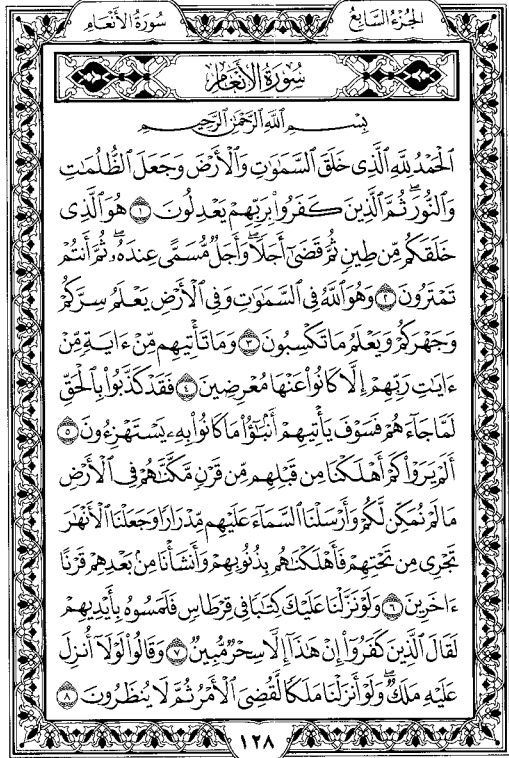 سُورَةُ الأَنْعَامِ الجُزْءُ السَّابِعُ
سُورَةُ الأَنْعَامِ
بِسْمِ ٱللَّهِ ٱلرَّحْمَٰنِ ٱلرَّحِيمِ
ٱلْحَمْدُ لِلَّهِ ٱلَّذِى خَلَقَ ٱلسَّمَٰوَٰتِ وَٱلْأَرْضَ وَجَعَلَ ٱلظُّلُمَٰتِ
وَٱلنُّورَ ۖ ثُمَّ ٱلَّذِينَ كَفَرُوا۟ بِرَبِّهِمْ يَعْدِلُونَ ١ هُوَ ٱلَّذِى
خَلَقَكُم مِّن طِينٍ ثُمَّ قَضَىٰٓ أَجَلًا ۖ وَأَجَلٌ مُّسَمًّى عِندَهُۥ ۖ ثُمَّ أَنتُمْ
تَمْتَرُونَ ٢ وَهُوَ ٱللَّهُ فِى ٱلسَّمَٰوَٰتِ وَفِى ٱلْأَرْضِ يَعْلَمُ سِرَّكُمْ
وَجَهْرَكُمْ وَيَعْلَمُ مَا تَكْسِبُونَ ٣ وَمَا تَأْتِيهِم مِّنْ ءَايَةٍ مِّنْ
ءَايَٰتِ رَبِّهِمْ إِلَّا كَانُوا۟ عَنْهَا مُعْرِضِينَ ٤ فَقَدْ كَذَّبُوا۟ بِٱلْحَقِّ
لَمَّا جَآءَهُمْ فَسَوْفَ يَأْتِيهِمْ أَنۢبَٰٓؤُا۟ مَا كَانُوا۟ بِهِۦ يَسْتَهْزِءُونَ ٥
أَلَمْ يَرَوْا۟ كَمْ أَهْلَكْنَا مِن قَبْلِهِم مِّن قَرْنٍ مَّكَّنَّٰهُمْ فِى ٱلْأَرْضِ
مَا لَمْ نُمَكِّن لَّكُمْ وَأَرْسَلْنَا ٱلسَّمَآءَ عَلَيْهِم مِّدْرَارًا وَجَعَلْنَا ٱلْأَنْهَٰرَ
تَجْرِى مِن تَحْتِهِمْ فَأَهْلَكْنَٰهُم بِذُنُوبِهِمْ وَأَنشَأْنَا مِنۢ بَعْدِهِمْ قَرْنًا
ءَاخَرِينَ ٦ وَلَوْ نَزَّلْنَا عَلَيْكَ كِتَٰبًا فِى قِرْطَاسٍ فَلَمَسُوهُ بِأَيْدِيهِمْ
لَقَالَ ٱلَّذِينَ كَفَرُوٓا۟ إِنْ هَٰذَآ إِلَّا سِحْرٌ مُّبِينٌ ٧ وَقَالُوا۟ لَوْلَآ أُنزِلَ
عَلَيْهِ مَلَكٌ ۖ وَلَوْ أَنزَلْنَا مَلَكًا لَّقُضِىَ ٱلْأَمْرُ ثُمَّ لَا يُنظَرُونَ ٨
١٢٨